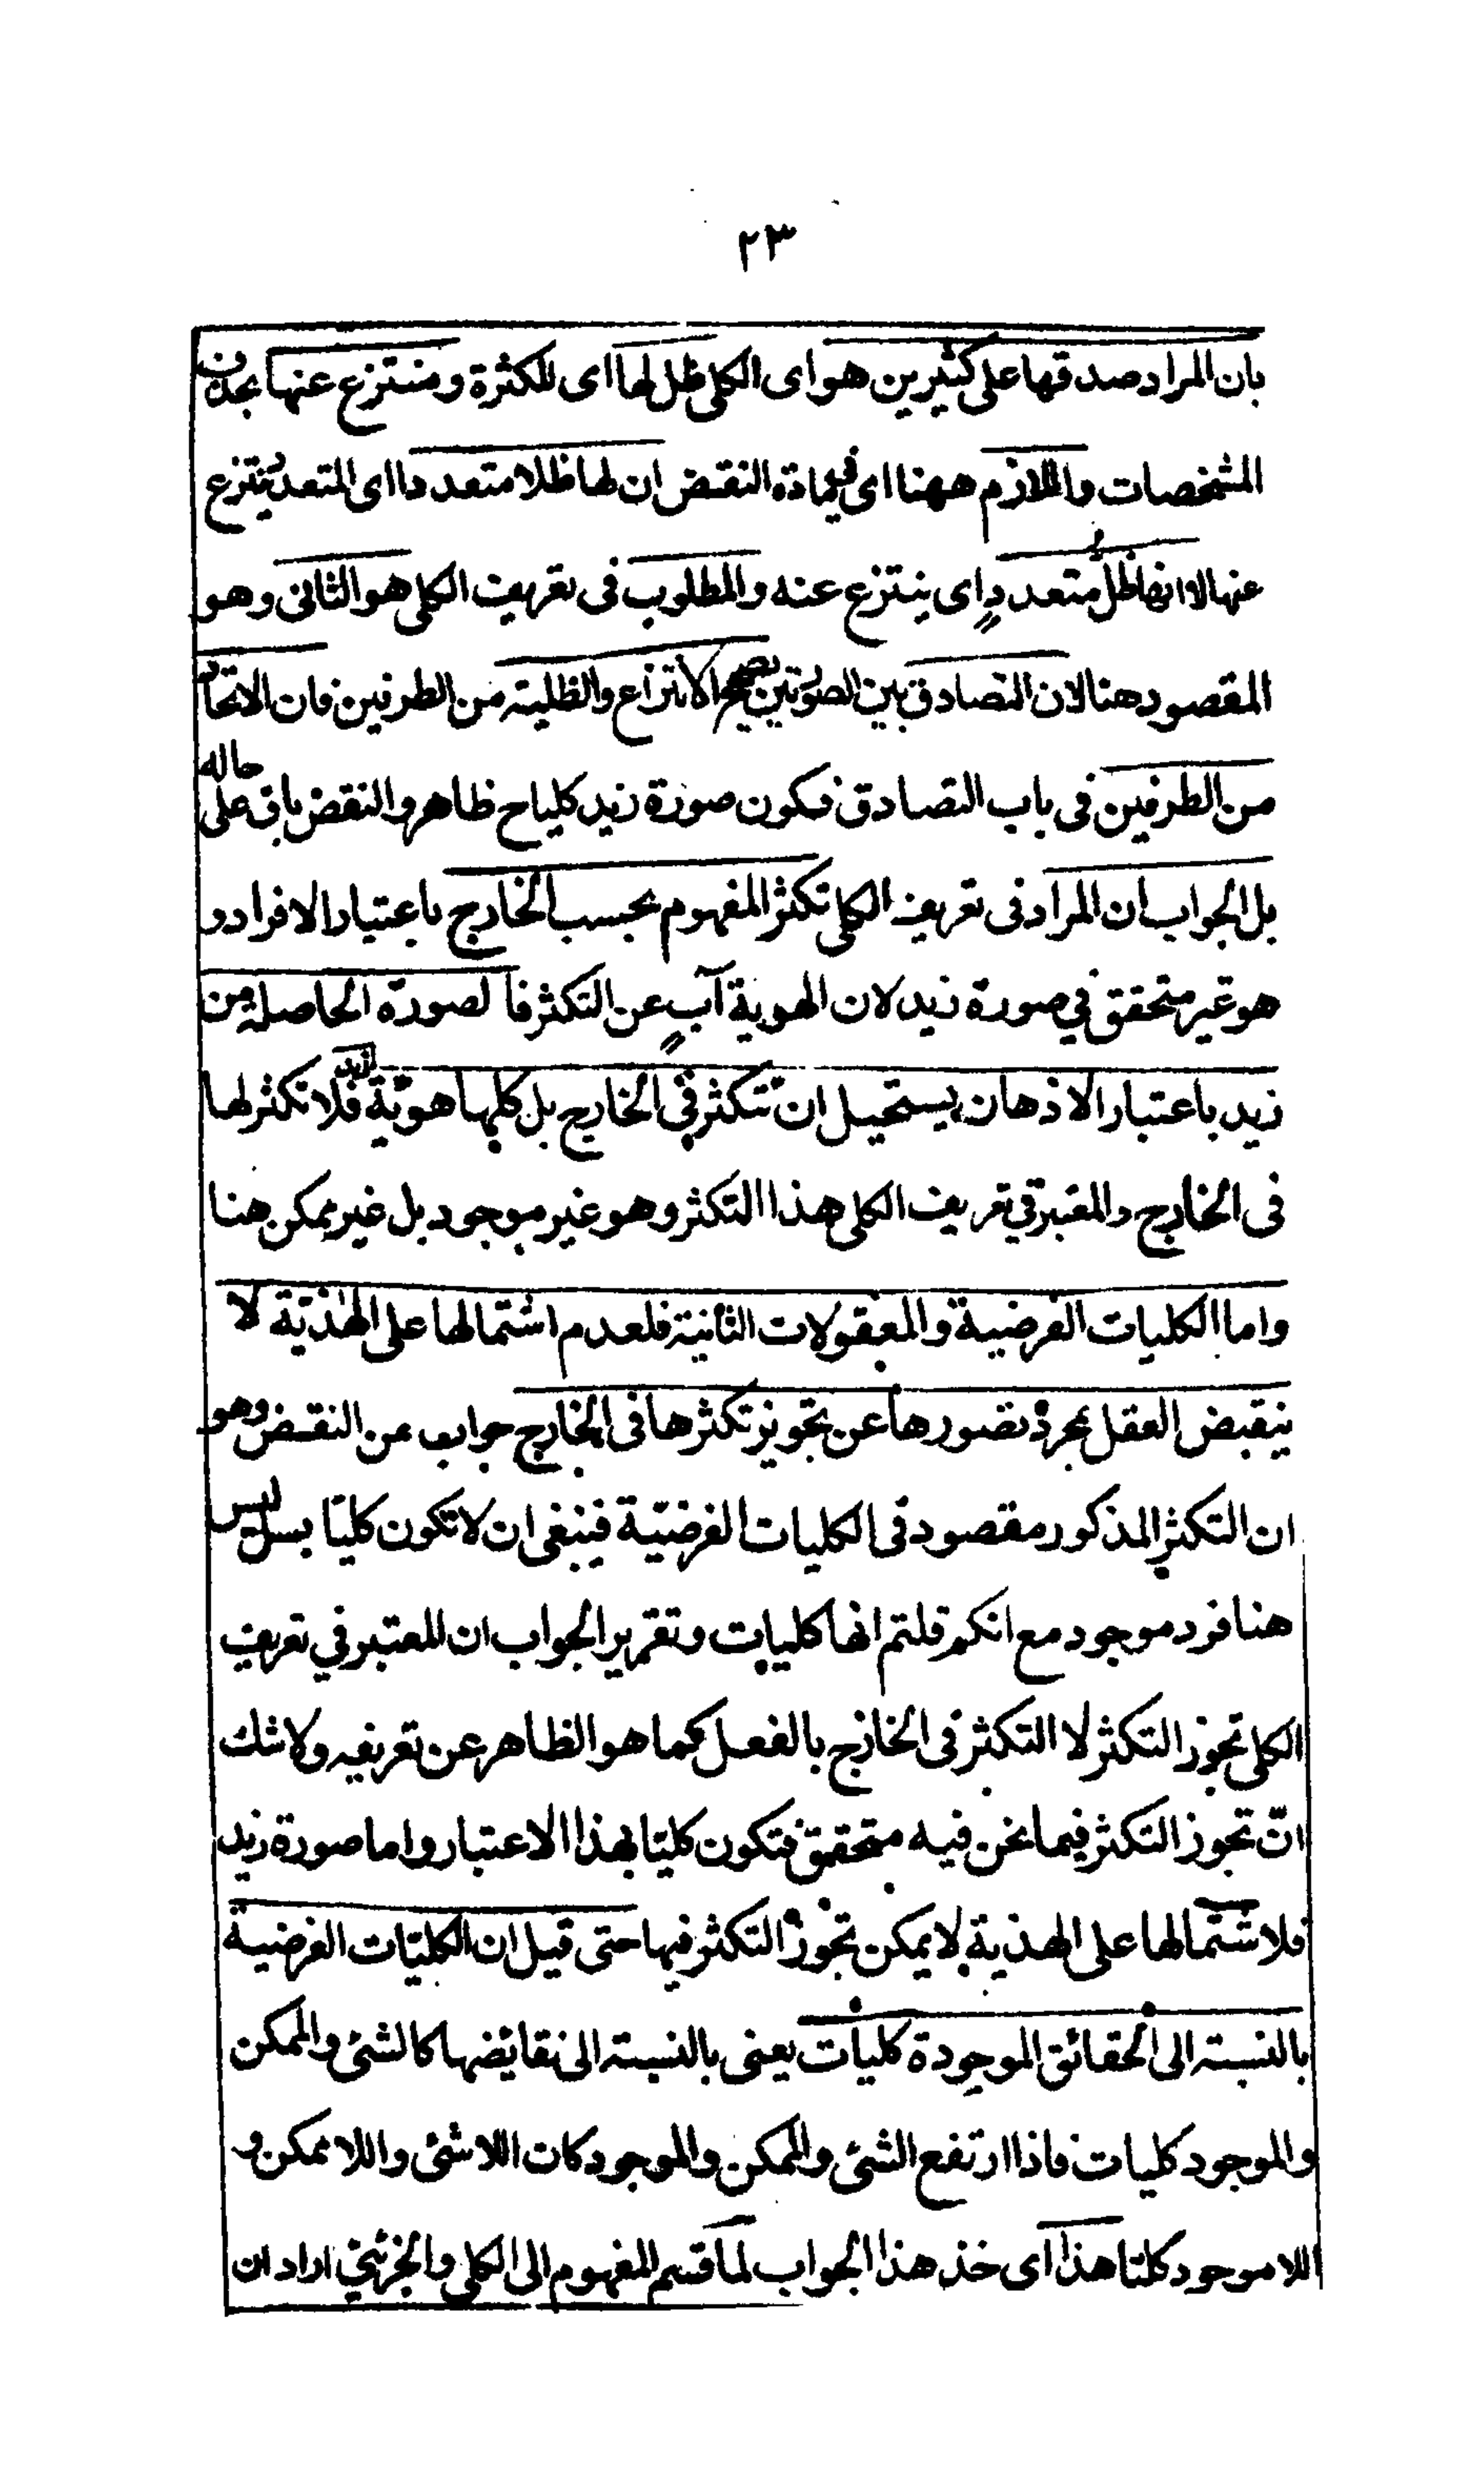 ٢٣
بان المراد صدقها على كثيرين هو اى الكلى ظل لها اى للكثرة و منتزع عنها بحذف
المشخصات واللازم ههنا اى فيمادة النقض ان لها ظلا متعددا اى المتعدد ينتزع
عنها لا انها ظل متعددٍ اى ينتزع عنه والمطلوب فى تعريف الكلى هو الثانى وهو
المقصود هنا لان التصادق بين الصورتين يصحح الانتزاع والظلية من الطرفين فان الاتحاد
من الطرفين فى باب التصادق فكون صورة زيد كليا ح ظاهر والنقض باق على حاله
بل الجواب ان المراد فى تعريف الكلى تكثر المفهوم بحسب الخارج باعتبار الافراد و
هو غير متحقق في صورة زيد لان الهوية آبٍ عن التكثر فالصورة الحاصلة من
زيد باعتبار الاذهان يستحيل ان تتكثر فى الخارج بل كلها هويّة زيد فلا تكثر لها
فى الخارج والمعتبر في تعريف الكلى هذا التكثر وهو غير موجود بل غير ممكن هنا
واما الكليات الفرضية والمعقولات الثانية فلعدم اشتمالها على الهٰذيّة لا
ينقبض العقل بمجرد تصورها عن تجويز تكثرها فى الخارج جواب عن النقض وهو
ان التكثر المذكور مقصود فى الكليات الفرضيّة فينبغى ان لا تكون كليّا بسل ليس
هنا فرد موجود مع انكم قلتم انها كليات وتقرير الجواب ان المعتبر في تعريف
الكلى تجوز التكثر لا التكثر فى الخارج بالفعل كما هو الظاهر عن تعريفه ولا شك
انّ تجوز التكثر فيما نحن فيه متحقق فتكون كليّا بهذا الاعتبار واما صورة زيد
فلا شتمالها على الهذية لا يمكن تجوز التكثر فيها حتى قيل ان الكليّات الفرضية
بالنسبة الى الحقائق الموجودة كليات يعنى بالنسبة الى نقائضها كالشئ والممكن
والموجود كليات فاذا ارتفع الشئ والممكن والموجود كات اللاشئ واللا ممكن و
اللا موجود كلتا هذا اى خذ هذا الجواب لما قسم المفهوم الى الكلى والجزئى اراد ان